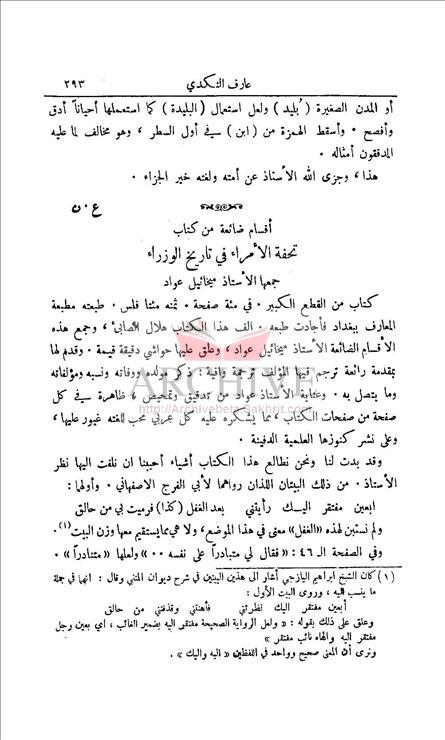 عارف النكدي
٢٩٣
أو المدن الصغيرة ( بُليد ) ولعل استعمال (البليدة ) كما استعملها أحياناً أدق
وأفصح ٠ وأسقط الهمزة من ( ابن ) في أول السطر ، وهو مخالف لما عليه
المدققون أمثاله ٠
هذا ، وجزى الله الأستاذ عن أمته ولغته خير الجزاء ٠
ع ٠ ن
أقسام ضائعة من كتاب
تحفة الأمراء في تاريخ الوزراء
جمعها الأستاذ ميخائيل عواد
كتاب من القطع الكبير ٠ في مئة صفحة ٠ ثمنه مئتا فلس ٠ طبعته مطبعة
المعارف ببغداد فأجادت طبعه ٠ الف هذا الكتاب هلال الصابي ، وجمع هذه
الأقسام الضائعة الأستاذ ميخائيل عواد ، وعلق عليها حواشي دقيقة قيمة ٠ وقدم لها
بمقدمة رائعة ترجم فيها المؤلف ترجمة وافية : ذكر مولده ووفاته ونسبه ومؤلفاته
وما يتصل به ٠ وعناية الأستاذ عواد من تدقيق وتمحيص ، ظاهرة في كل
صفحة من صفحات الكتاب ، مما يشكره عليه كل عربي محب للغته غيور عليها ،
وعلى نشر كنوزها العلمية الدفينة ٠
وقد بدت لنا ونحن نطالع هذا الكتاب أشياء أحببنا ان نلفت اليها نظر
الأستاذ ٠ من ذلك البيتان اللذان رواهما لأبي الفرج الاصفهاني ٠ وأولها :
ابعين مفتقر اليك رأيتني بعد الغفل (كذا) فرميت بي من حالق
ولم نستبن لهذه «الغفل» معنى في هذا الموضع، ولا هي مما يستقيم معها وزن البيت(١).
وفي الصفحة الـ ٤٦ : « فقال لي متبادراً على نفسه ٠٠ » ولعلها « متنادراً » ٠
(١) كان الشيخ ابراهيم اليازجي أشار الى هذين البيتين في شرح ديوان المتنبي وقال : انهما في جملة
ما ينسب اليه ، وروى البيت الأول :
أبعين مفتقر اليك نظرتني فأهنتني وقذفتني من حالق
وعلق على ذلك بقوله : « ولعل الرواية الصحيحة مفتقر اليه بضمير الغائب ، اي بعين رجل
مفتقر اليه والهاء نائب مفتقر »
ونرى أن المعنى صحيح وواحد في اللفظين « اليه واليك » .
ARCHIVE
http://Archivebeta.Sakhrit.com